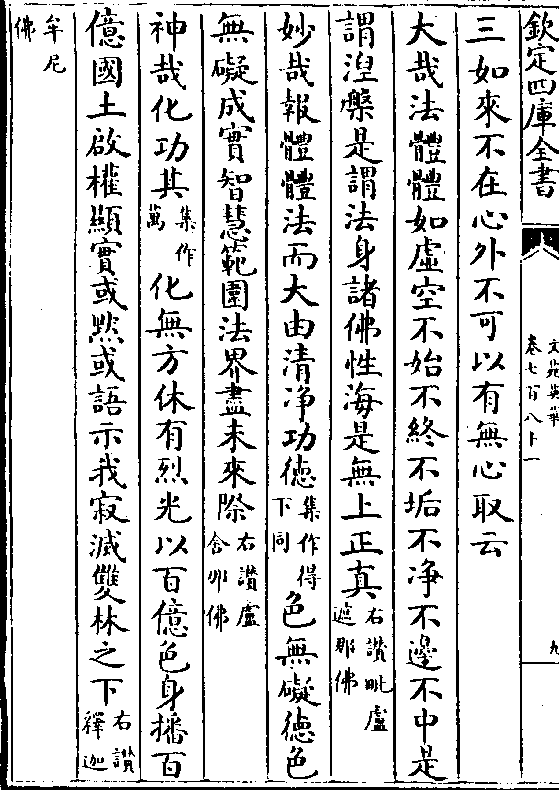 欽定四庫全書
文苑英華
卷七百八十一
九
三如來不在心外不可以有無心取云
大哉法體體如虛空不始不終不垢不净不邊不中是
謂湼槃是謂法身諸佛性海是無上正真右讚毗盧遮那佛
妙哉報體體法而大由清净功徳集作得下同色無礙徳色
無礙成實智慧範圍法界盡未來際右讚盧舍那佛
神哉化功其集作萬化無方休有烈光以百億色身播百
億國土啟權顯實或黙或語示我寂滅雙林之下右讚釋迦
牟尼佛